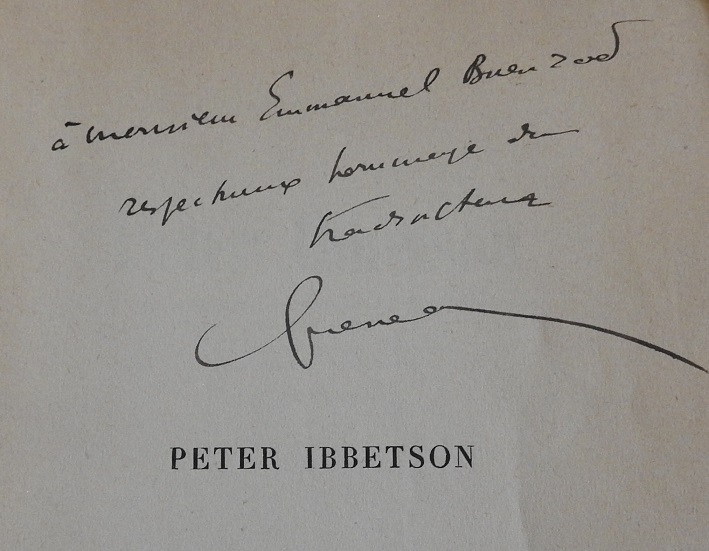 à monsieur Emmanuel Buenzod
respectueux hommage du
traducteur
Queneau
PETER IBBETSON